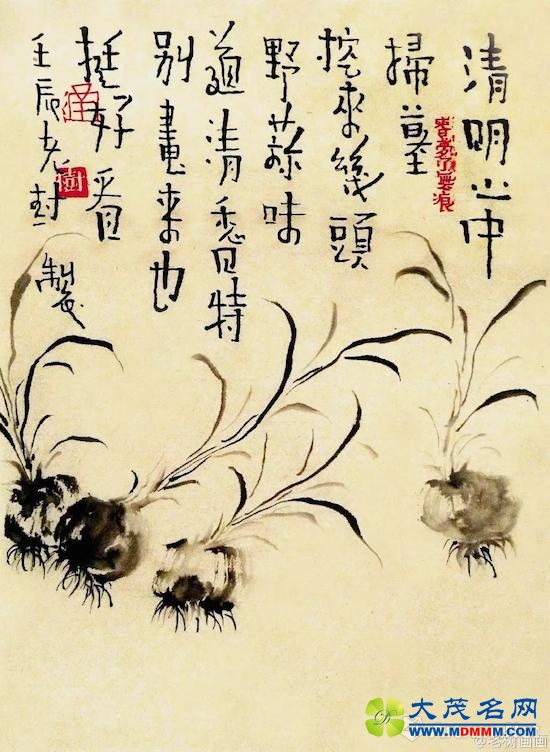 清明山中
掃墓
挖来幾頭
野蒜味
道清香且特
別畫来也
挺好看
壬辰老封製
樹
大茂名网
WWW.MDMMM.COM
@老树画画